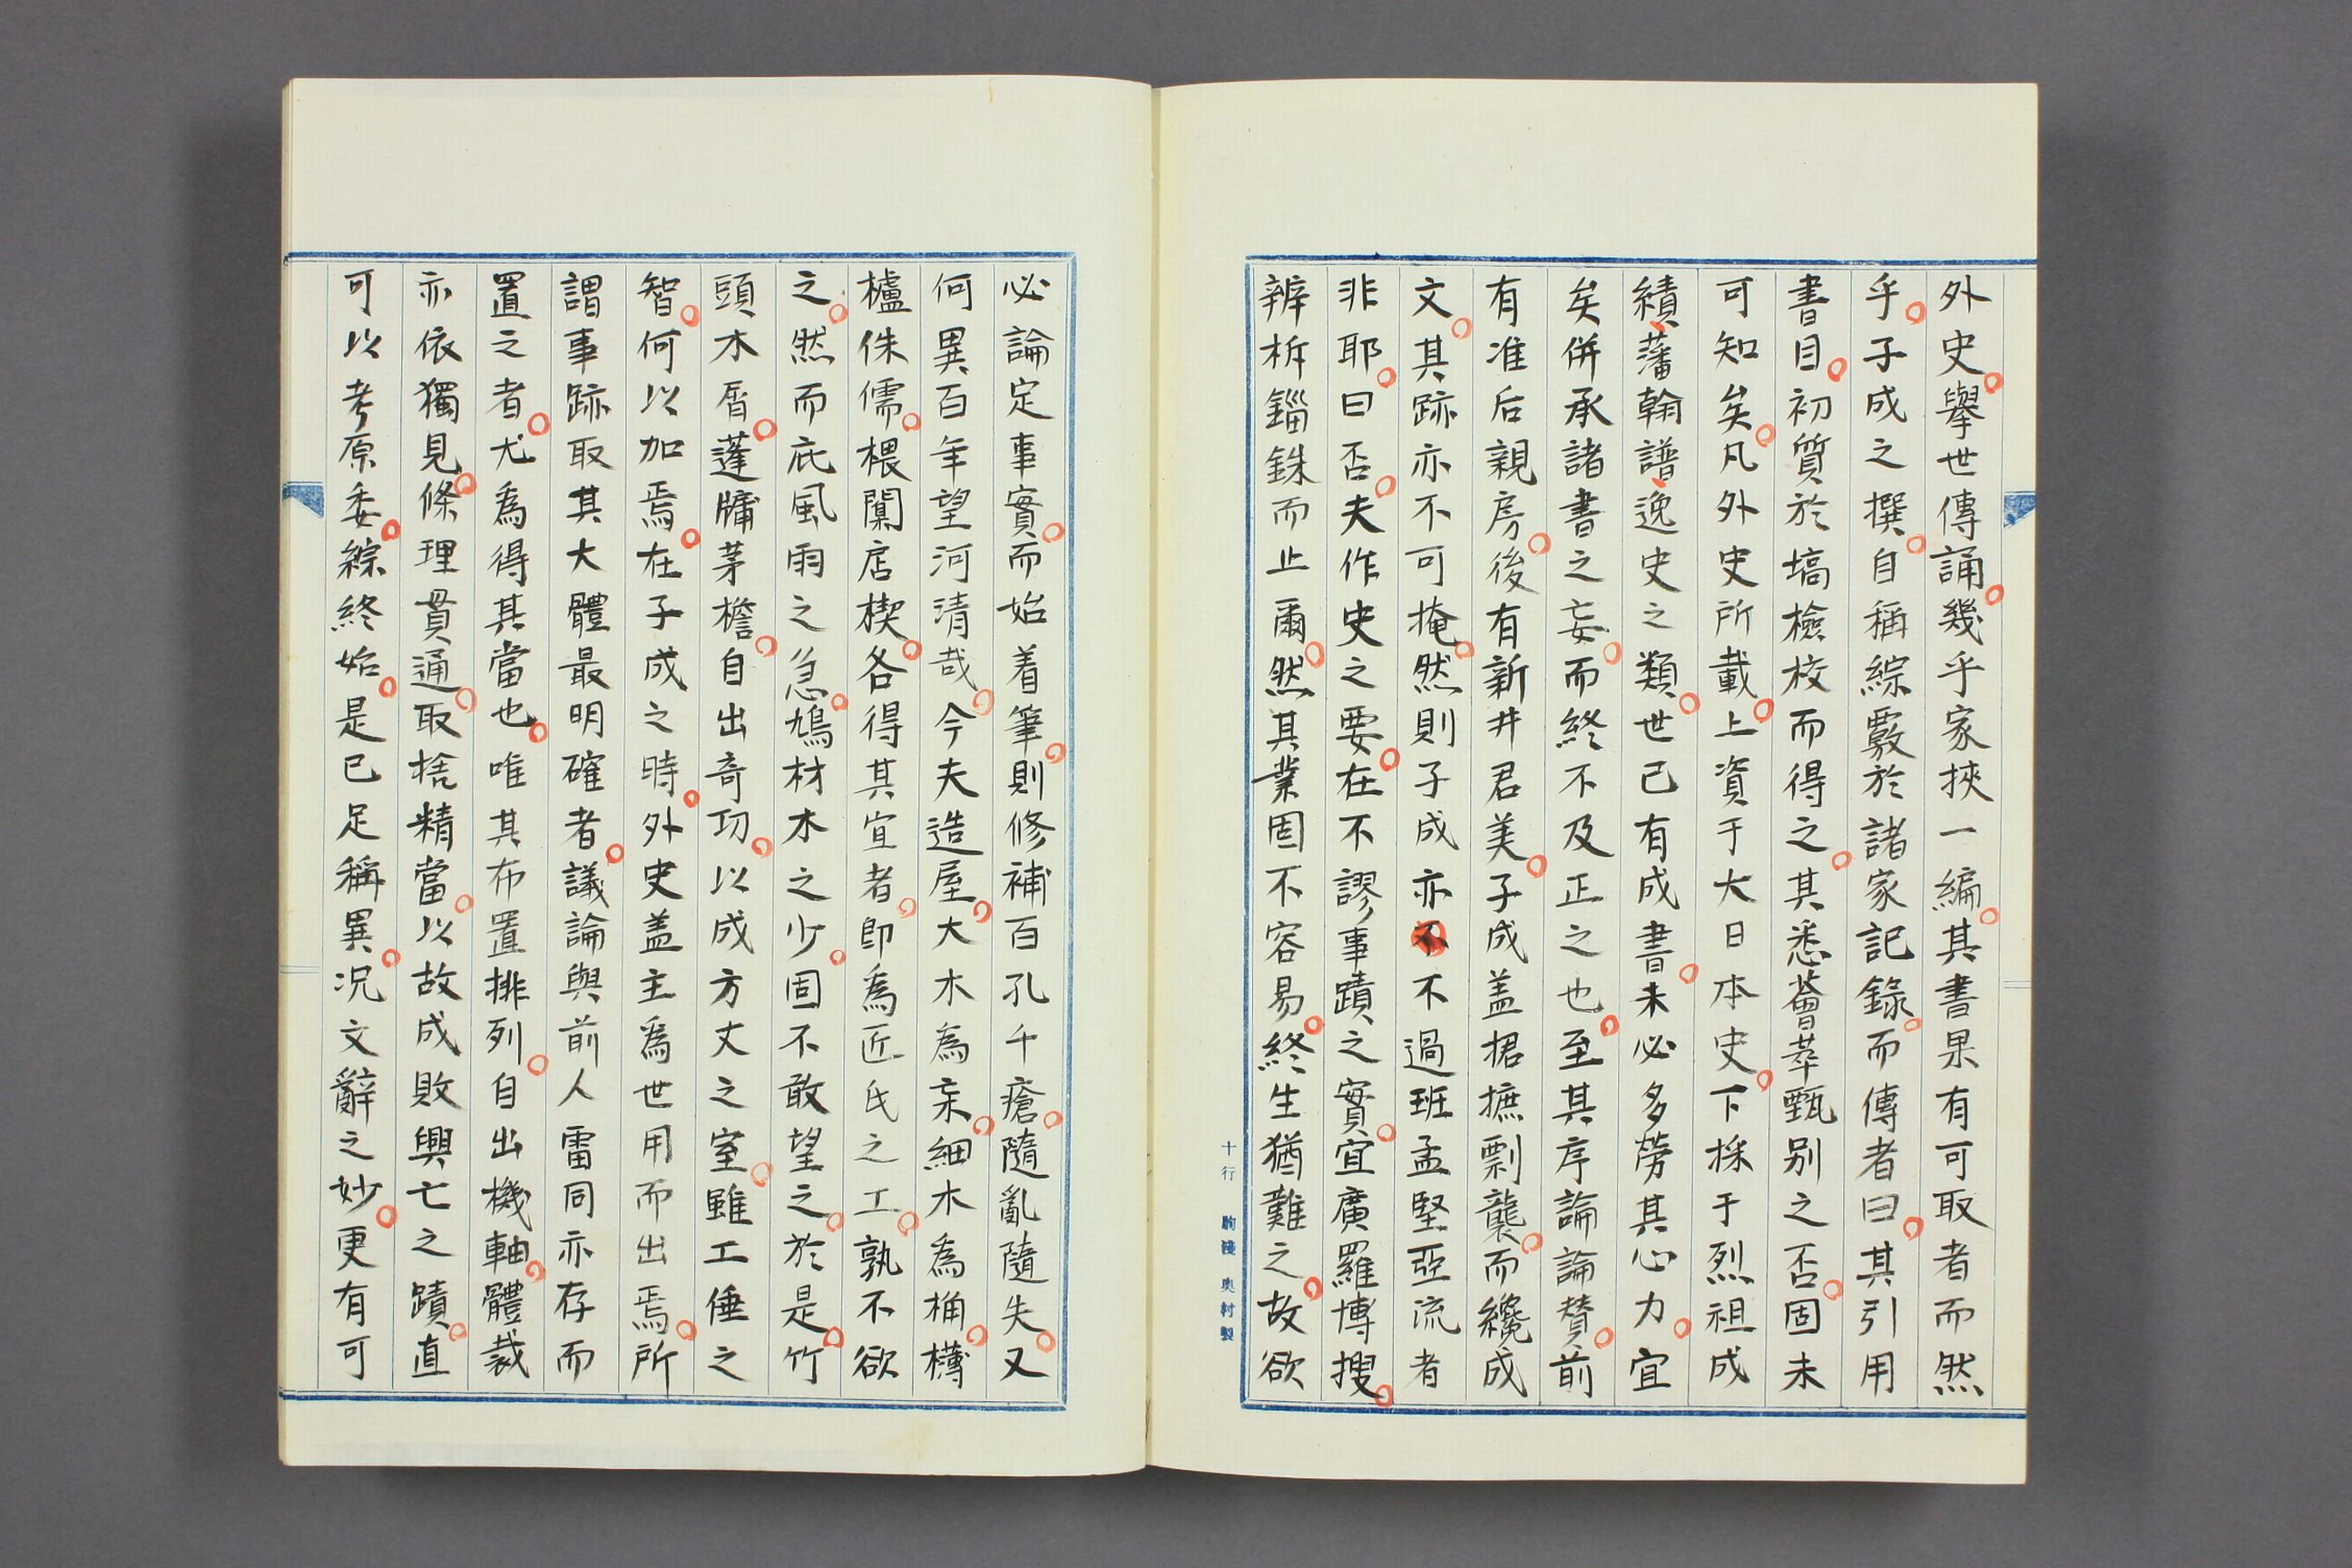 外史。舉世傳誦。幾乎家挾一編。其書果有可取者而然
乎。子成之撰。自稱綜覈於諸家記錄。而傳者曰。其引用
書目。初質於塙檢校而得之。其悉薈萃甄別之否。固未
可知矣。凡外史所載。上資于大日本史。下採于烈祖成
績、藩翰譜、逸史之類。世已有成書。未必多勞其心力。宜
矣併承諸書之妄。而終不及正之也。至其序論論賛。前
有准后親房。後有新井君美。子成盖捃摭剽襲。而纔成
文。其跡亦不可掩。然則子成亦不不過班孟堅亞流者
非耶。曰否。夫作史之要。在不謬事蹟之實。宜廣羅博搜。
辨析錙銖而止爾。然其業固不容易。終生猶難之。故欲
十行 駒淺 奥村製
必論定事實。而始着筆。則修補百孔千瘡。隨亂隨失。又
何異百年望河清哉。今夫造屋。大木為杗。細木為桷。欂
櫨侏儒。椳闑扂楔。各得其宜者。即為匠氏之工。孰不欲
之。然而庇風雨之急。鳩材木之少。固不敢望之。於是。竹
頭木屑。蓬牖茅檐。自出奇功。以成方丈之室。雖工倕之
智。何以加焉。在子成之時。外史盖主為世用而出焉。所
謂事跡取其大體最明確者。議論與前人雷同亦存而
置之者。尤為得其當也。唯其布置排列。自出機軸。體裁
亦依獨見。條理貫通。取捨精當。以故成敗興亡之蹟。直
可以考原委。綜終始。是已足稱異。况文辭之妙。更有可